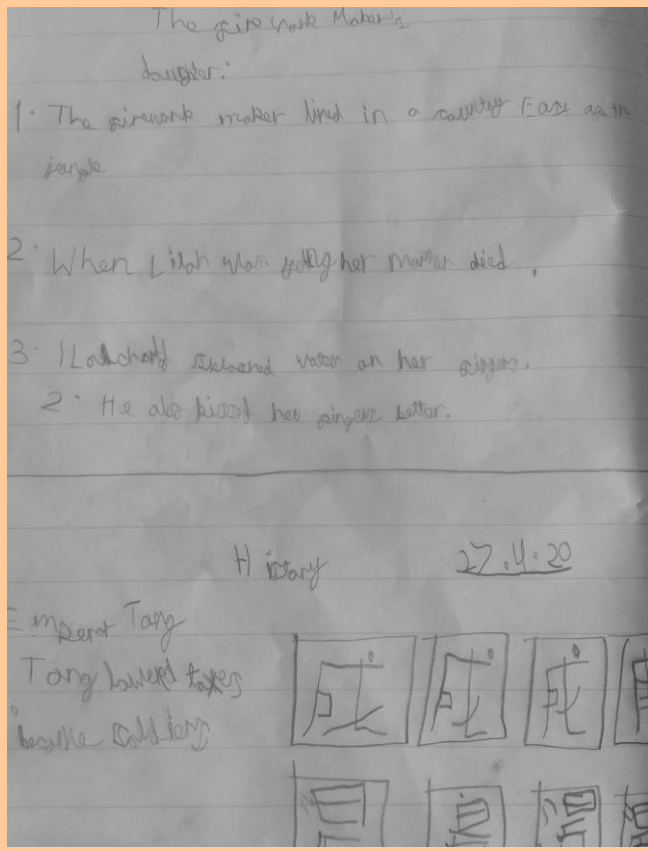 The firework Maker's
daughter:
1. The firework maker lived in a country East of the
jungle
2. When Lilah was young her mother died.
3. 1 Lalchand splashed water on her fingers.
2. He also kissed her fingers better.
History 27.4.20
Emperor Tang
Tang lowered taxes
became soldiers
成 成 成
湯